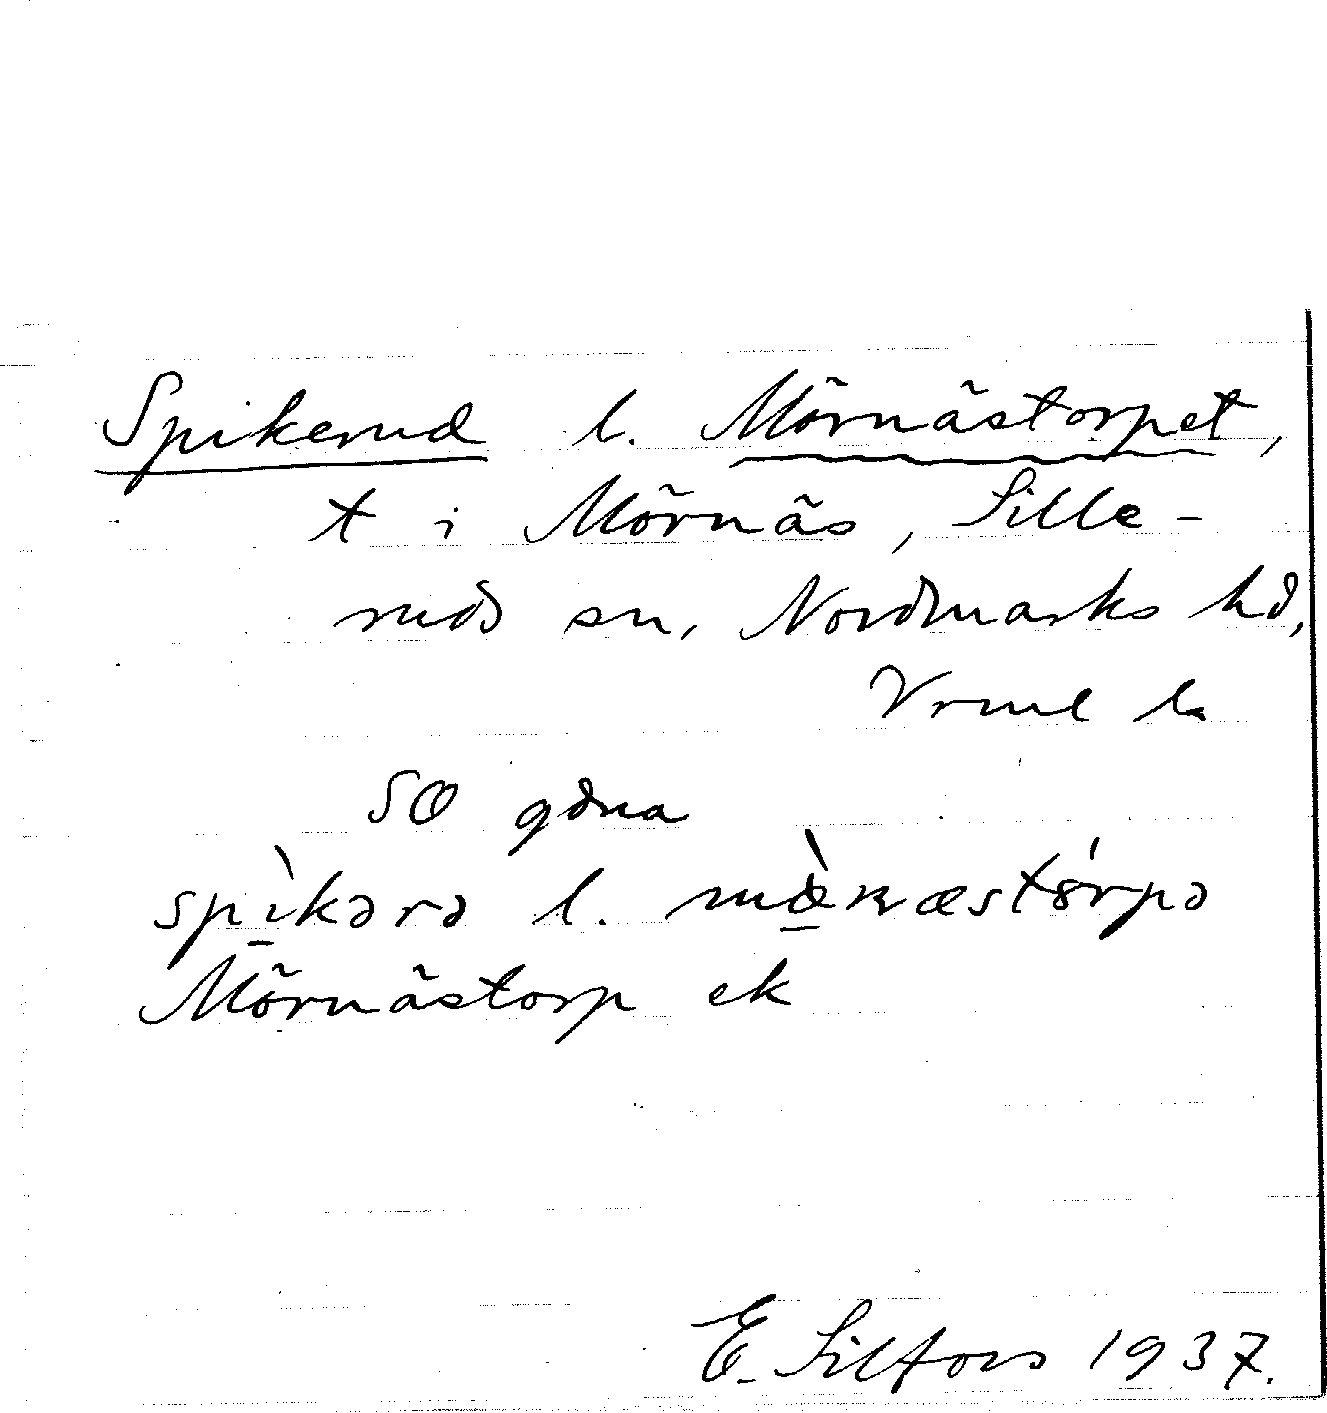 Spikerud l. Mörnästorpet,
t i Mörnäs, Sille-
ruds sn, Nordmarks hd,
Vrml l.
SO gdna
spìkərə l. mæ̀ɳæstórpə
Mörnästorp ek
E. Silfors 1937.